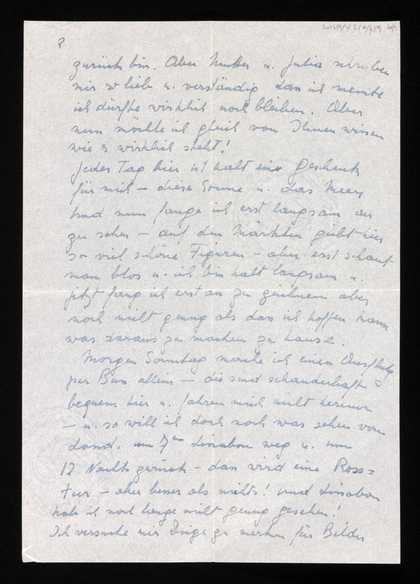 2
zurück bin. Aber Mutter u. Julia
mir so lieb u. verständig dass ich meinte
ich dürfte wirklich noch bleiben. Aber
nun möchte ich gleich von Ihnen wissen
wie es wirklich steht!
Jeder Tag hier ist halt ein Geschenk
für mich – diese Sonne u. das Meer
und nun fange ich erst langsam an
zu sehen – auf den Märkten giebt es hier
so viel schöne Figuren – aber erst schaut
man blos u. ich bin halt langsam u.
jetzt fang ich erst an zu zeichnen aber
noch nicht genug als dass ich hoffen kann
was daraus zu machen zu hause.
Morgen Sonntag mache ich einen
per Bus allein – die sind
bequem hier u. fahren mich nicht herum
– u. so will ich doch noch was sehen vom
Land. um 7 Lissabon weg u. um
12 Nachts zurück – das wird eine Ross=
kur – aber besser als nichts! und Lissabon
hab ich noch lange nicht genug gesehen!
Ich versuche mir Dinge zu merken für Bilder